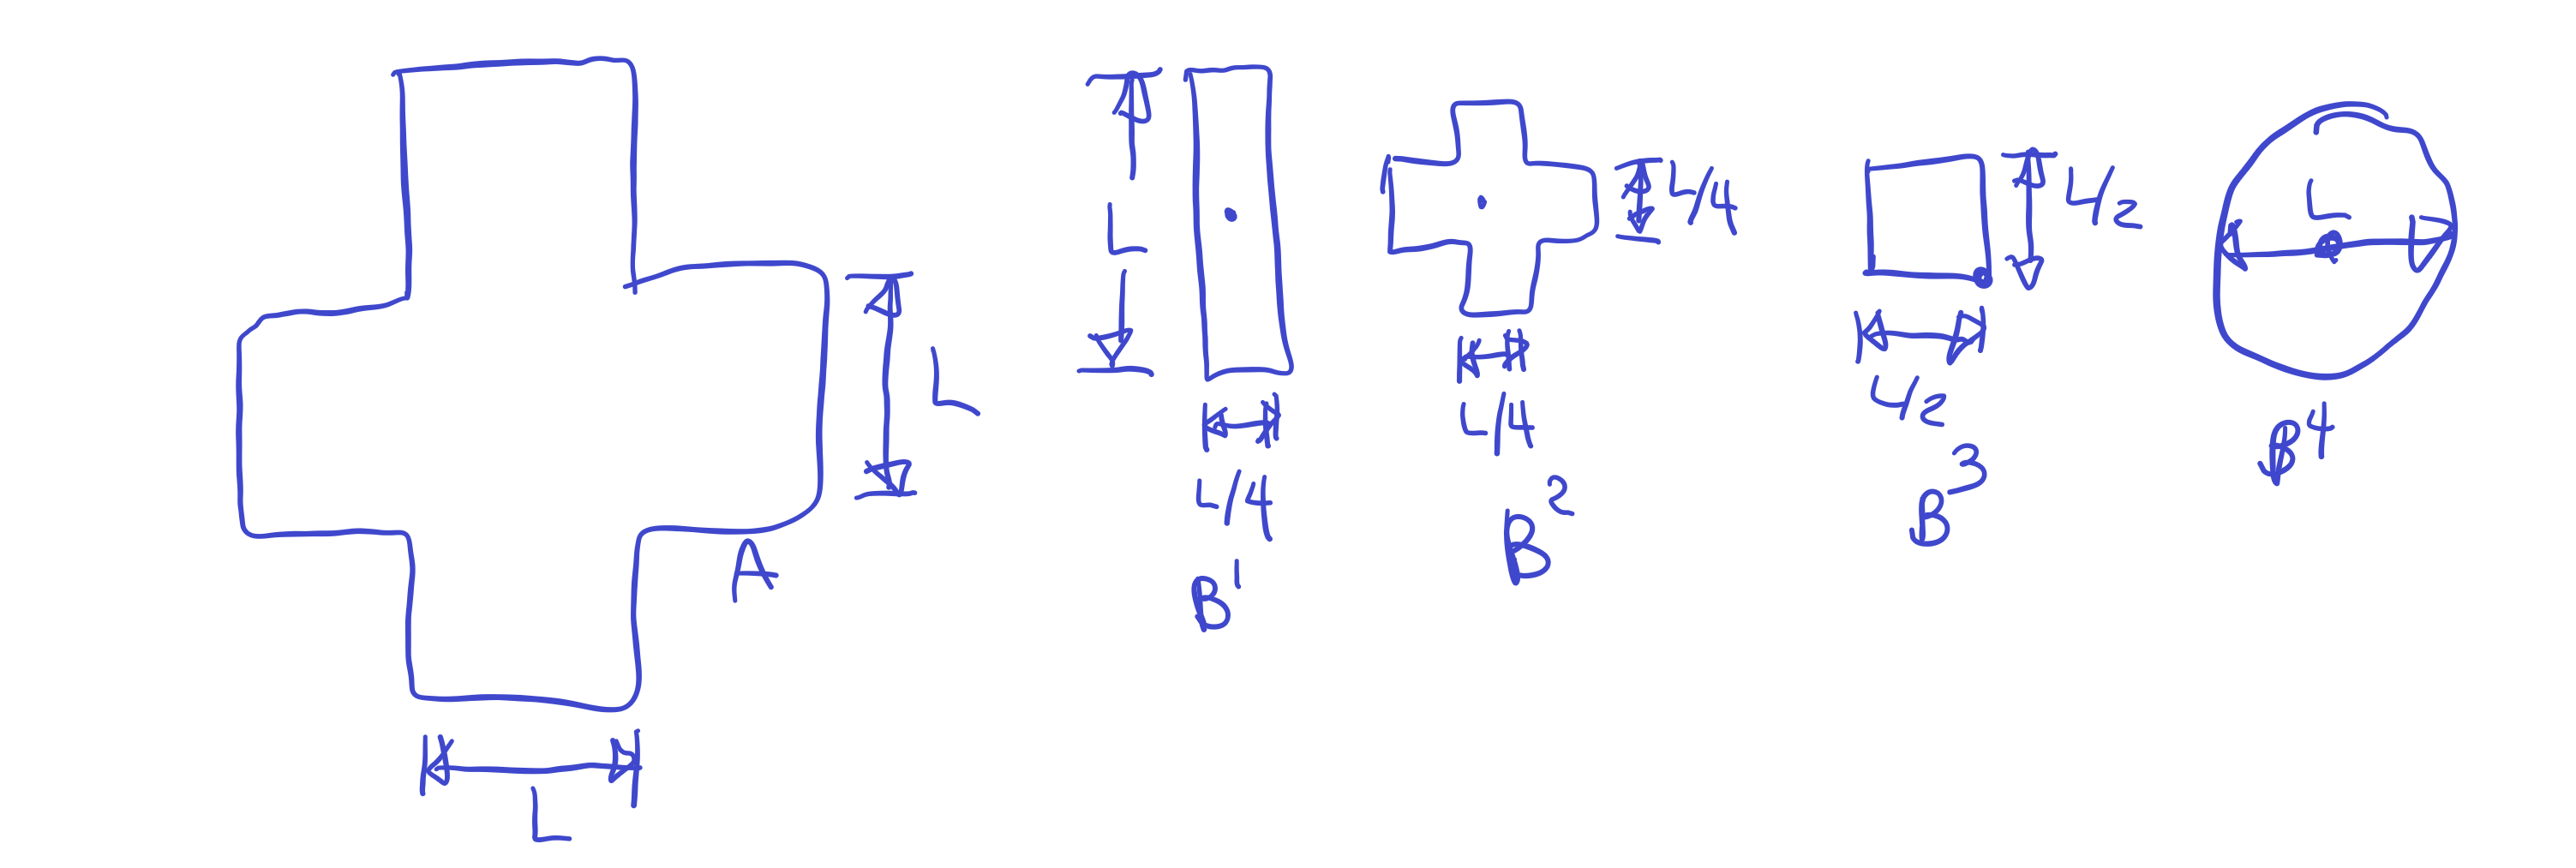 L
A
L
L
L/4
B¹
L/4
L/4
B²
L/2
L/2
B³
L
B⁴